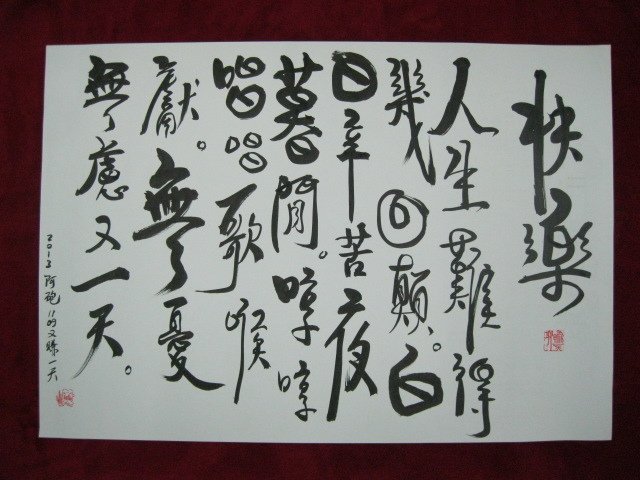 快樂
人生難得
幾回顛。白
日辛苦夜
暮閒。哼哼
唱唱歌喉
獻。無憂
無慮又一天。
2013 阿砲 1109又賺一天